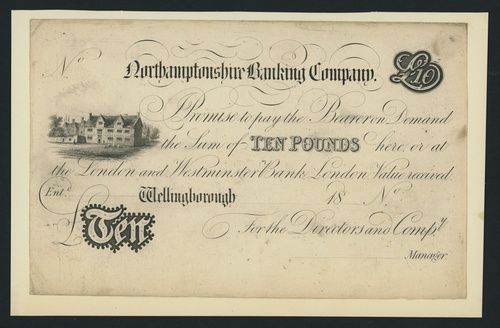 No
Northamptonshire Banking Company.
£10
I Promise to pay the Bearer on Demand
the Sum of TEN POUNDS here, or at
the London and Westminster Bank, London, Value received.
Entd.
Wellingborough 18 No
For the Directors and Compy
£ Ten
Manager.